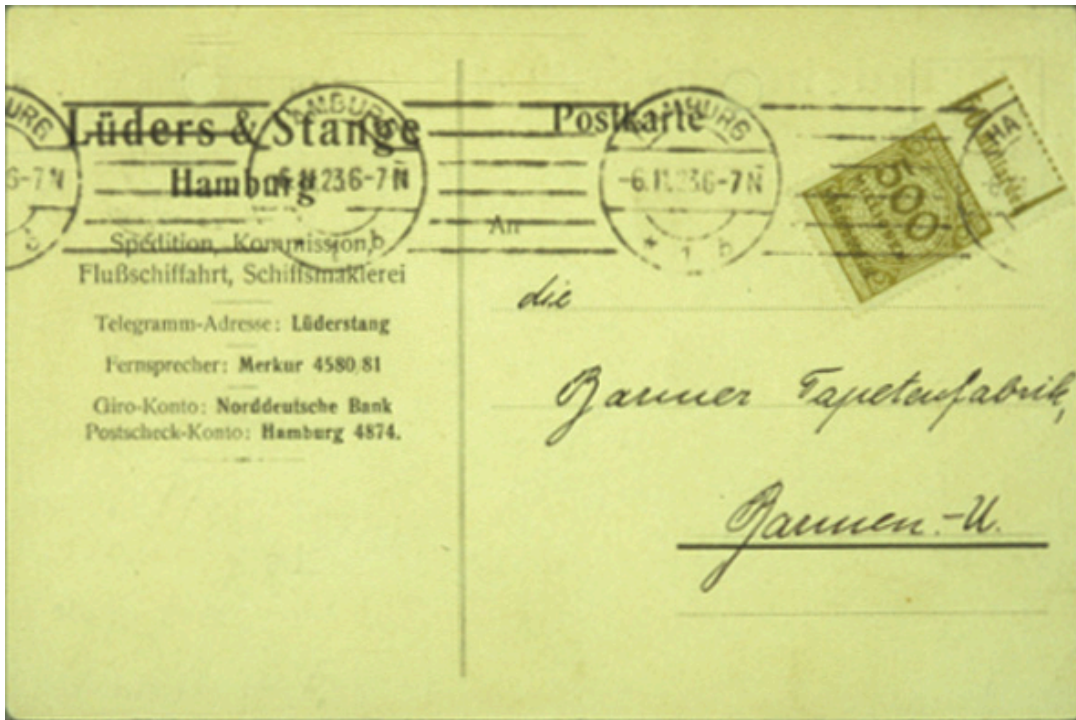 Lüders & Stange
Hamburg
Spedition, Kommission,
Flußschiffahrt, Schiffsmaklerei
Telegramm-Adresse: Lüderstang
Fernsprecher: Merkur 4580/81
Giro-Konto: Norddeutsche Bank
Postscheck-Konto: Hamburg 4874.
HAMBURG
-6.11.23 6-7 N
* 1 b
Postkarte
500
An
die
Barmer Tapetenfabrik,
Barmen.-U.